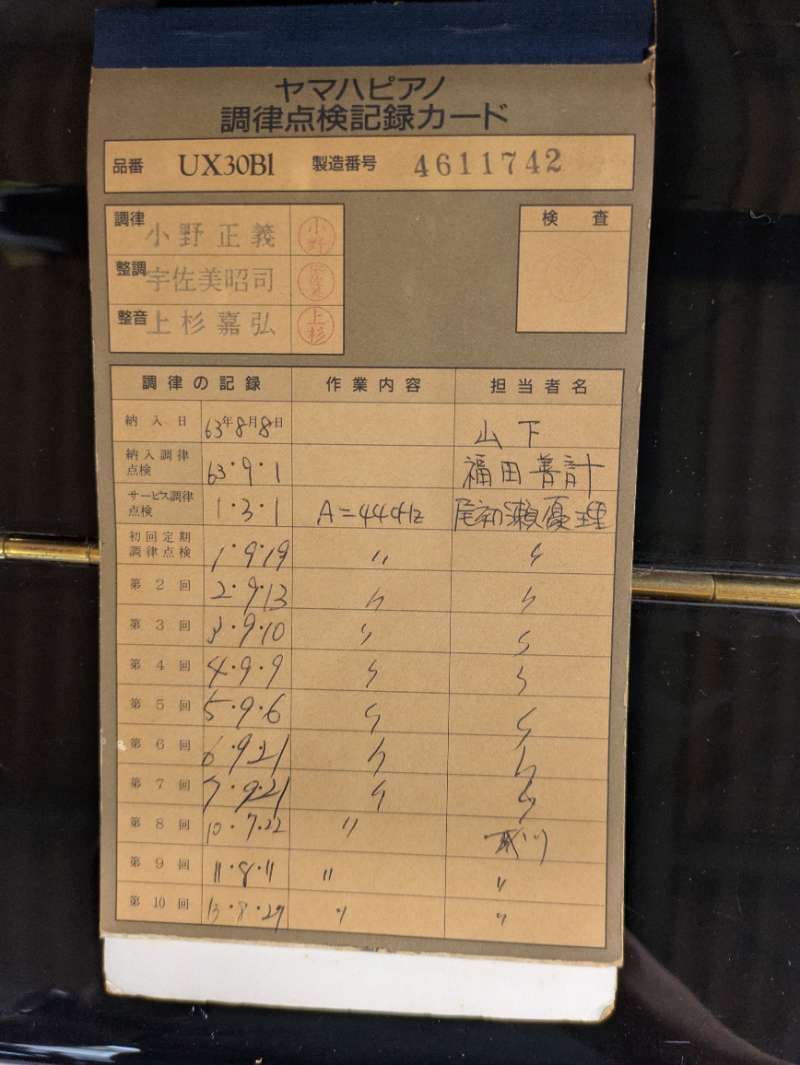 ヤマハピアノ
調律点検記録カード
品番 UX30Bl 製造番号 4611742
調律 小野正義 小野
検査
整調 宇佐美昭司
整音 上杉嘉弘 上杉
調律の記録 作業内容 担当者名
納入日 63年8月8日 山下
納入調律点検 63・9・1 福田善計
サービス調律点検 1・3・1 A=442Hz 尾初瀬優理
初回定期調律点検 1・9・19 〃 〃
第2回 2・9・13 〃 〃
第3回 3・9・10 〃 〃
第4回 4・9・9 〃 〃
第5回 5・9・6 〃 〃
第6回 6・9・21 〃 〃
第7回 7・9・21 〃 〃
第8回 10・7・22 〃
第9回 11・8・11 〃 〃
第10回 13・8・29 〃 〃